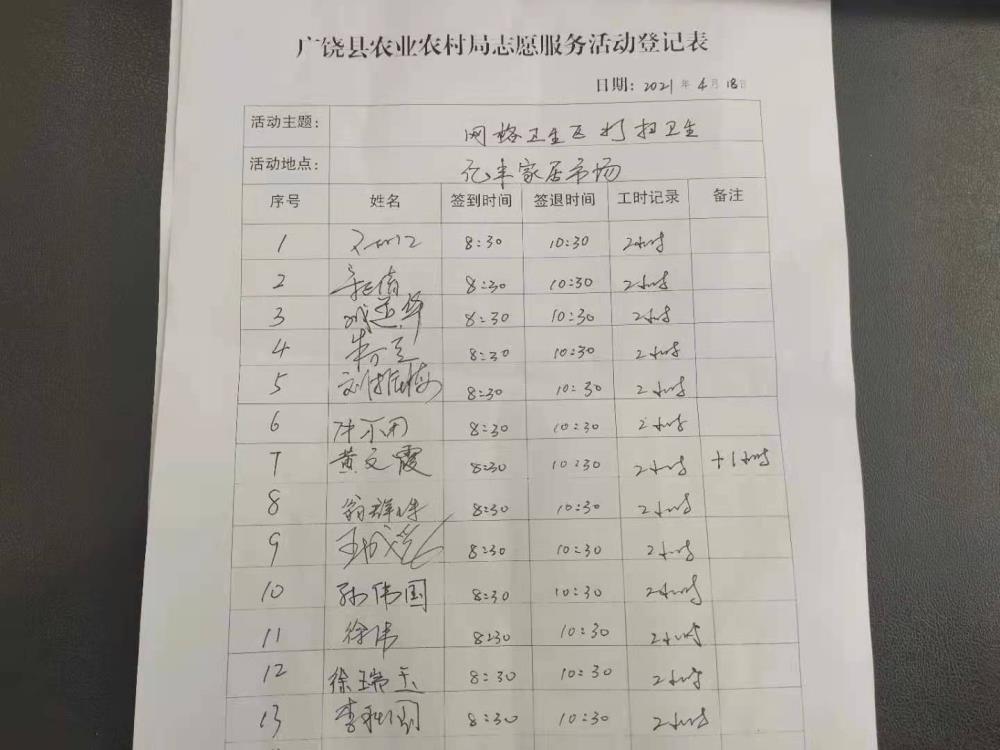 广饶县农业农村局志愿服务活动登记表
日期: 2021年 4月 18日
活动主题: 网格卫生区打扫卫生
活动地点: 亿丰家居市场
序号 姓名 签到时间 签退时间 工时记录 备注
1 8:30 10:30 2小时
2 8:30 10:30 2小时
3 8:30 10:30 2小时
4 8:30 10:30 2小时
5 8:30 10:30 2小时
6 8:30 10:30 2小时
7 黄文霞 8:30 10:30 2小时 +1小时
8 8:30 10:30 2小时
9 8:30 10:30 2小时
10 孙伟国 8:30 10:30 2小时
11 徐伟 8:30 10:30 2小时
12 徐瑞玉 8:30 10:30 2小时
13 8:30 10:30 2小时